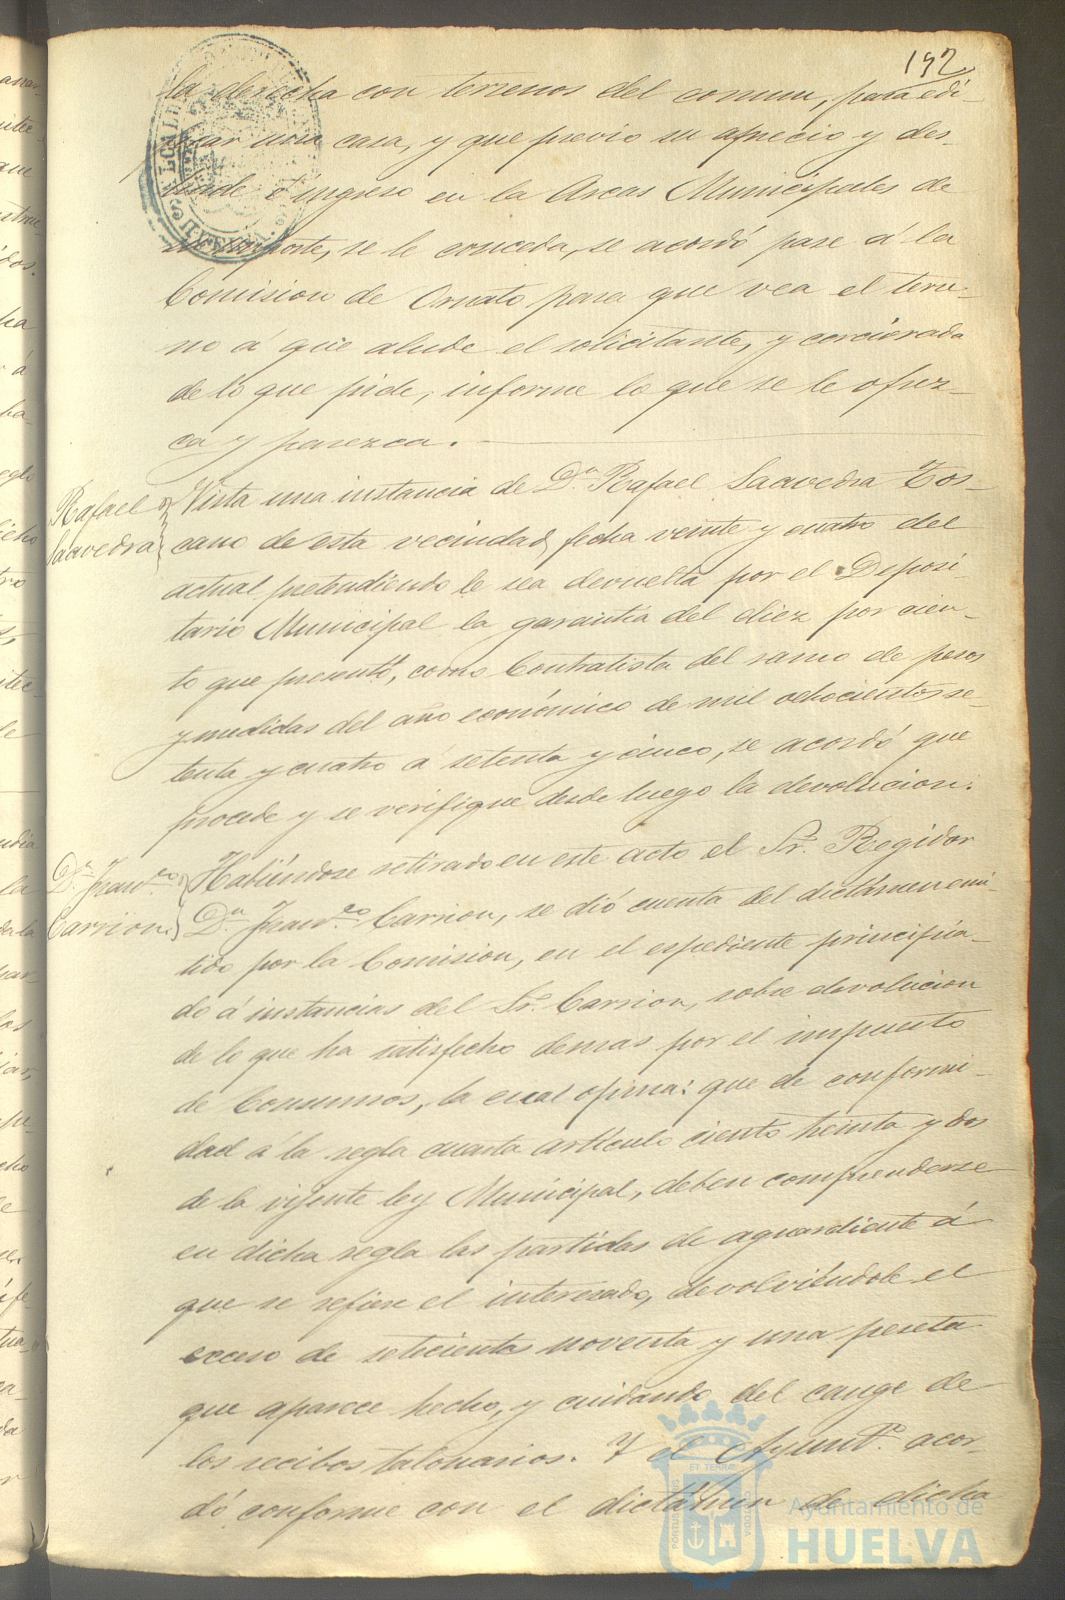 192
la derecha con terrenos del comun, para edi-
ficar una casa, y que previo su aprecio y des-
linde é ingreso en la Arcas Municipales de
su importe, se le conceda, se acordó pase á la
Comision de Ornato para que vea el terre-
no á que alude el solicitante, y cerciorada
de lo que pide, informe lo que se le ofrez-
ca y parezca.
Rafael
Saavedra
Vista una instancia de D.n Rafael Saavedra Tos-
cano de esta vecindad, fecha veinte y cuatro del
actual pretendiendo le sea devuelta por el Deposi-
tario Municipal la garantia del diez por cien-
to que presentó, como Contratista del ramo de pesos
y medidas del año económico de mil ochocientos se-
tenta y cuatro á setenta y cinco, se acordó que
procede y se verifique desde luego la devolucion.
D.n Fran.co
Carrion.
Habiéndose retirado en este acto el Sr. Regidor
D.n Fran.co Carrion, se dió cuenta del dictámen emi-
tido por la Comision, en el espediente principia-
do á instancias del Sr. Carrion, sobre devolucion
de lo que ha satisfecho demas por el impuesto
de Consumos, la cual opina: que de conformi-
dad á la regla cuarta artículo ciento treinta y dos
de la vijente ley Municipal, deben comprenderse
en dicha regla las partidas de aguardiente á
que se refiere el interesado, devolviéndole el
exceso de setecientas noventa y una peseta
que aparece hecho, y cuidando del cange de
los recibos talonarios. Y el Ayunt.o acor-
dó conforme con el dictámen de dicha
Ayuntamiento de
HUELVA